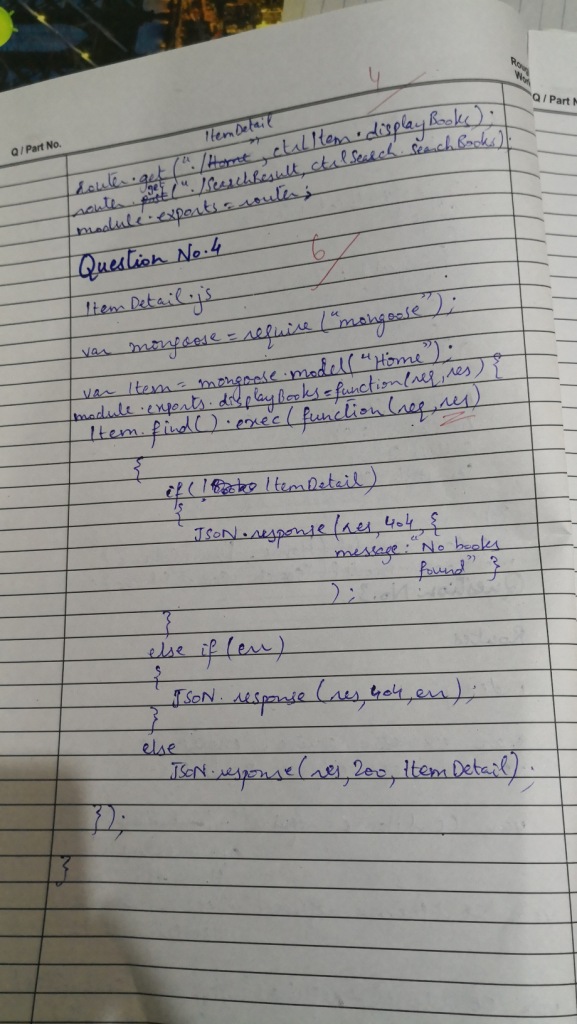 Rough Work
Q / Part No.
Q / Part N
4
ItemDetail
router.get("./Home", ctrlItem.displayBooks);
router.post get("./SearchResult, ctrlSearch.SearchBooks);
module.exports = router;
Question No.4
6
ItemDetail.js
var mongoose = require("mongoose");
var Item = mongoose.model("Home");
module.exports.displayBooks = function(req, res) {
Item.find().exec(function(req, res)
{
if(!Books ItemDetail)
{
JSON.response(res, 404, {
message: "No books
found" }
);
}
else if(err)
{
JSON.response(res, 404, err);
}
else
JSON.response(res, 200, ItemDetail);
});
}